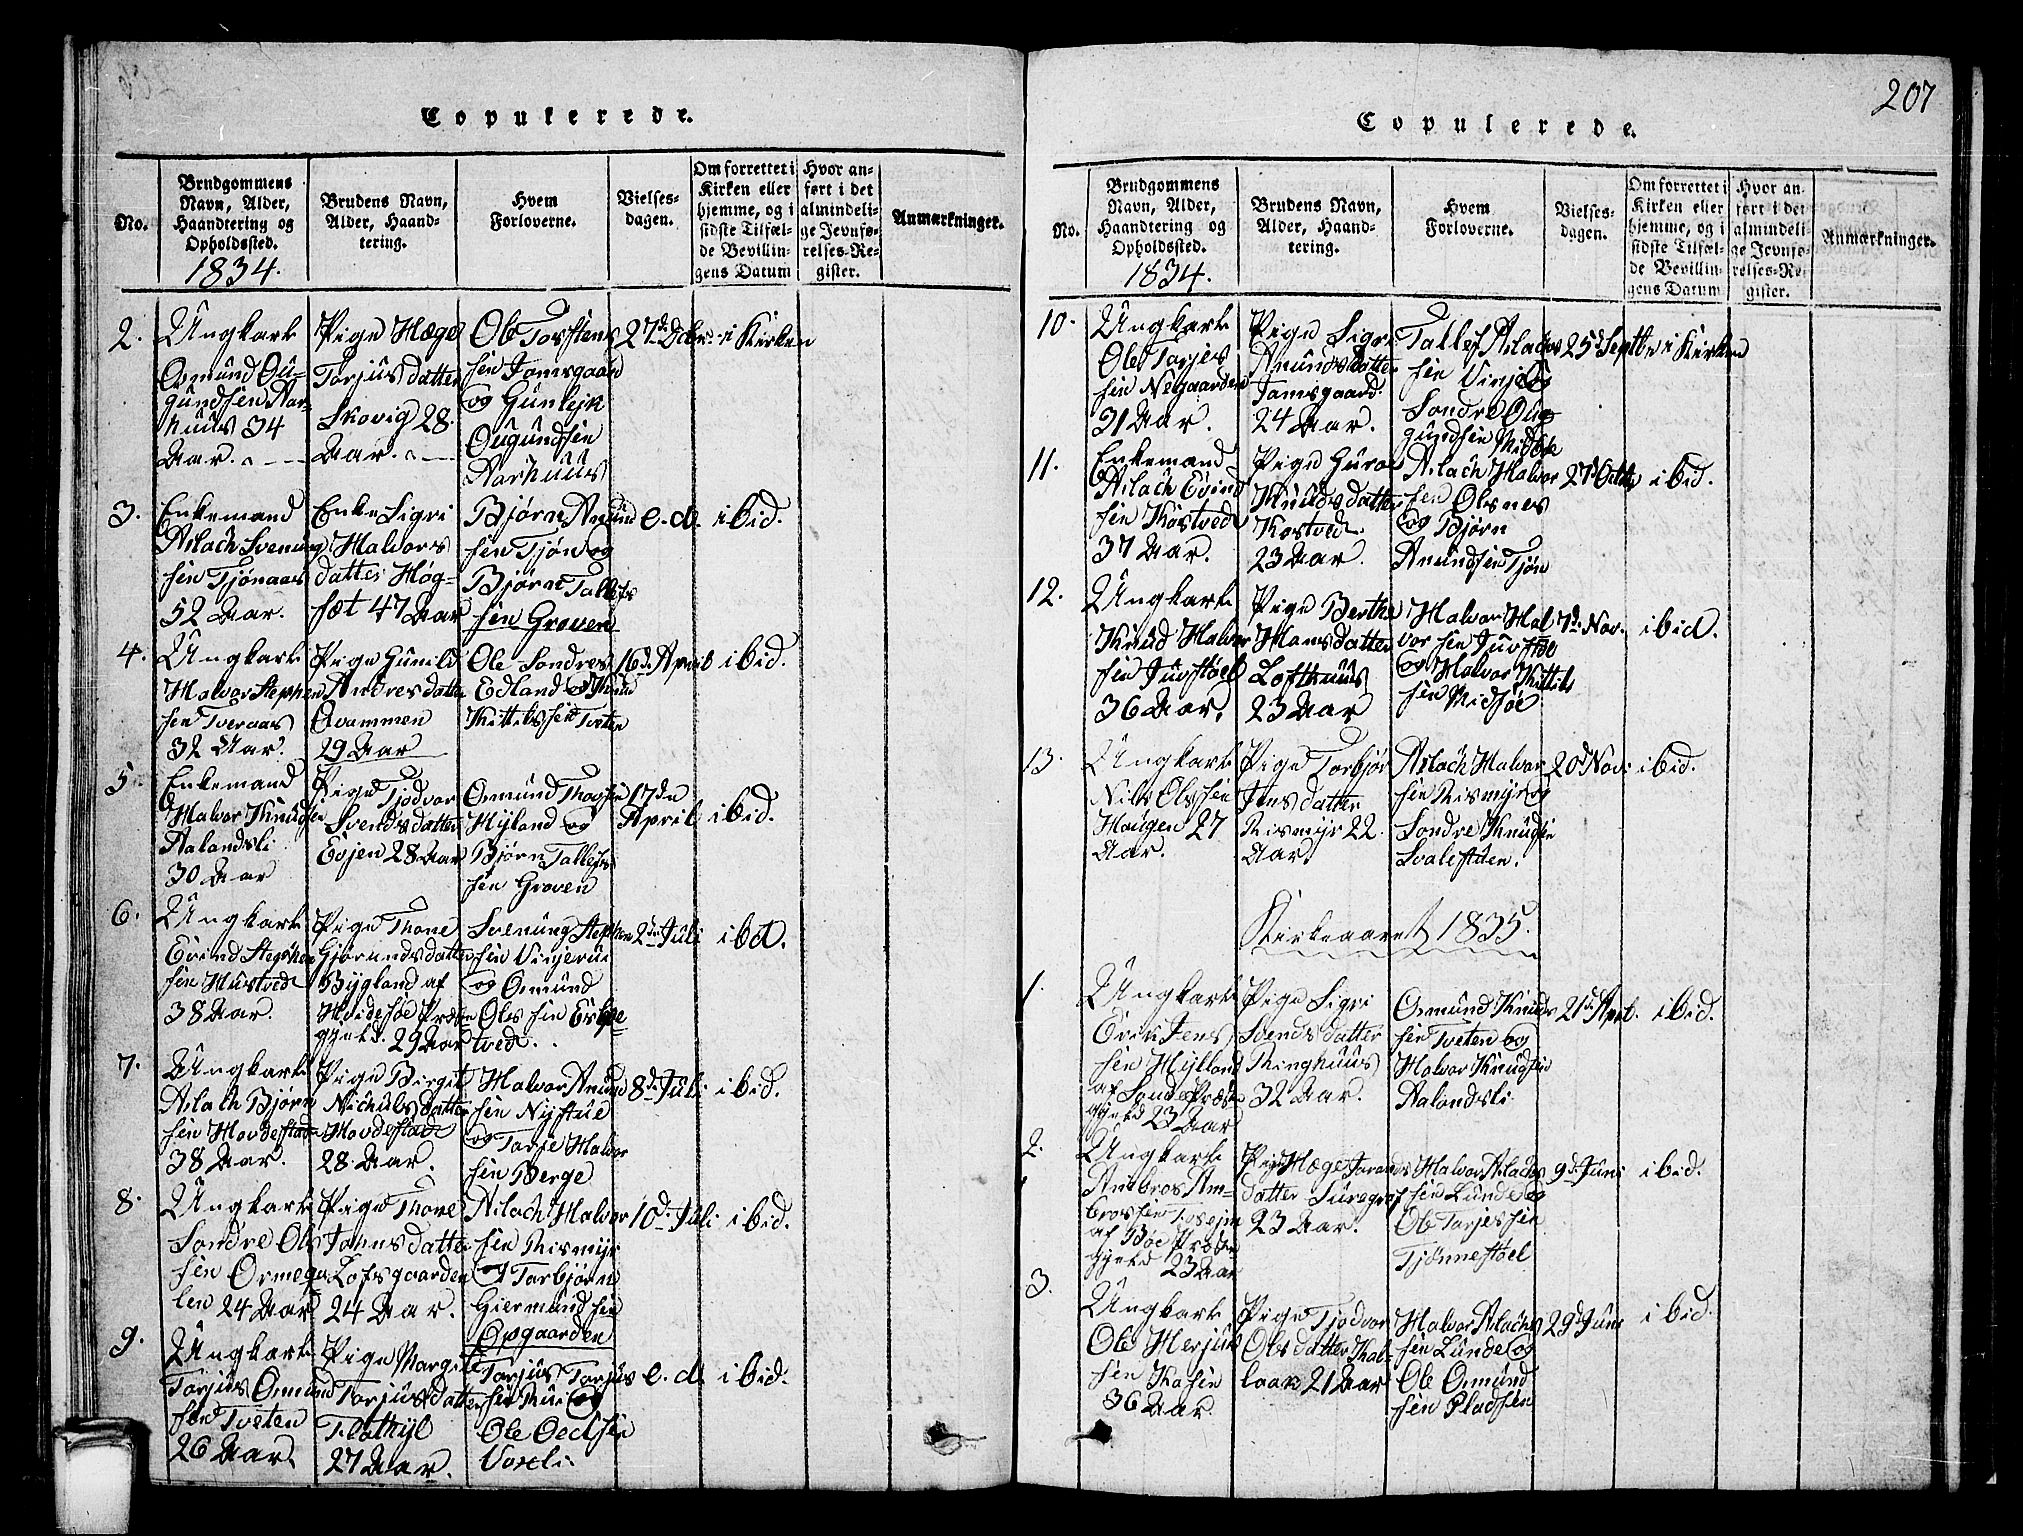 Copulerede.
No.
Brudgommens Navn, Alder, Haandtering og Opholdssted.
1834.
Brudens Navn, Alder, Haandtering.
Hvem Forloverne.
Vielses-dagen.
Om forrettet i Kirken eller hjemme, og i sidste Tilfælde Bevillingens Datum
Hvor anført i det almindelige Jevnførelses-Register.
Anmærkninger.
2.
Ungkarl
Osmund Ou-
gundsen Aar-
huus 34
Aar.
Pige Hæge
Torjusdatter
Skovig 28
Aar.
Ole Torstens
sen Jamsgaard
og Gunlejk
Ougundsen
Aarhuus
27de Dcbr. i Kirken
3.
Enkemand
Aslach Svenung
sen Tjønaas
52 Aar.
Enke Sigri
Halvors
datter Høg-
sæt 47 Aar
Bjørn Anund
sen Tjøn og
Bjørn Tallefs
sen Groven
e. d. ibid.
4.
Ungkarl
Halvor Stephen
sen Tveraas
32 Aar.
Pige Gunild
Andresdatter
Qvammen
29 Aar
Ole Sondres
Edland og Knud
Kittelssen Tveten
16de April ibid.
5.
Enkemand
Halvor Knudsen
Aalandsli
30 Aar
Pige Tjodvor
Svendsdatter
Evjen 28 Aar
Osmund Thovsen
Hyland og
Bjørn Tallefs
sen Groven
17de
April ibid.
6.
Ungkarl
Evind Stephen
sen Mustvedt
38 Aar.
Pige Thone
Gjørundsdatter
Bygland af
Hvidesøe Præste
gjeld. 29 Aar
Svenung Stephen
sen Vinjerui
og Osmund
Ols sen Erkje
tved.
2den Juli ibd.
7.
Ungkarl
Aslach Bjørn
sen Hovdestad
38 Aar.
Pige Birgit
Nichulsdatter
Hovdestad
28 Aar.
Halvor Anund
sen Nystue
og Tarje Halvor
sen Berge
8de Juli ibid.
8.
Ungkarl
Sondre Ols
sen Ormega
len 24 Aar
Pige Thone
Jamsdatter
Lofsgaarden
24 Aar.
Aslach Halvor
sen Rismyr
og Torbjørn
Giermundsen
Opgaarden
10de Juli ibid.
9.
Ungkarl
Torjus Osmund
sen Tveten
26 Aar.
Pige Margit
Torjusdatter
Flathyl
27 Aar.
Torjus Torjus
sen Rui og
Ole Oechsen
Voxli.
e. d. ibid.
207
Copulerede.
No.
Brudgommens Navn, Alder, Haandtering og Opholdssted.
1834.
Brudens Navn, Alder, Haandtering.
Hvem Forloverne.
Vielses-dagen.
Om forrettet i Kirken eller hjemme, og i sidste Tilfælde Bevillingens Datum
Hvor anført i det almindelige Jevnførelses-Register.
Anmærkninger.
10.
Ungkarl
Ole Tarjes
sen Negaarden
31 Aar.
Pige Sigri
Anundsdatter
Jamsgaard.
24 Aar.
Tallef Aslachs
sen Vinje og
Sondre Oug
gundsen Midbøe
25de Septbr i Kirken
11.
Enkemand
Aslach Evind
sen Kostvedt
37 Aar.
Pige Guroe
Knudsdatter
Kostvedt
23 Aar.
Aslach Halvor
sen Olsnes
og Bjørn
Anundsen Tjøn
27de Octbr ibid.
12.
Ungkarl
Knud Halvor
sen Juvstøel
36 Aar.
Pige Berthe
Hansdatter
Lofthuus
23 Aar
Halvor Hal
vorsen Juvstøe
og Halvor Kittels
sen Midsøe
7de Nov. ibid.
13.
Ungkarl
Nils Olssen
Haugen 27
Aar.
Pige Torbjør
Jensdatter
Rismyr 22
Aar.
Aslach Halvor
sen Rismyr og
Sondre Knudsen
Svalestuen.
20de Nov. ibid.
Kirkeaaret 1835.
1.
Ungkarl
Even Jens
sen Hylland
af Sonde Præste
gjeld 23 Aar
Pige Sigri
Svendsdatter
Ringhuus
32 Aar.
Osmund Knuds
sen Tveten og
Halvor Knudsen
Aalandsli
21de Apr. ibid.
2.
Ungkarl
Ambros Am-
brossen
af Bøe Præste
gjeld 23 Aar
Pige Hæge Tarands
datter Suregraf
23 Aar.
Halvor Aslachs
sen Lunde og
Ole Tarjessen
Tjønnestøel
9de Juni ibid.
3.
Ungkarl
Ole Herjus
sen Kasin
36 Aar.
Pige Tjodvor
Olsdatter Kal-
laak 21 Aar
Halvor Aslachs
sen Lunde og
Ole Osmund
sen Pladsen
29de Juni ibid.